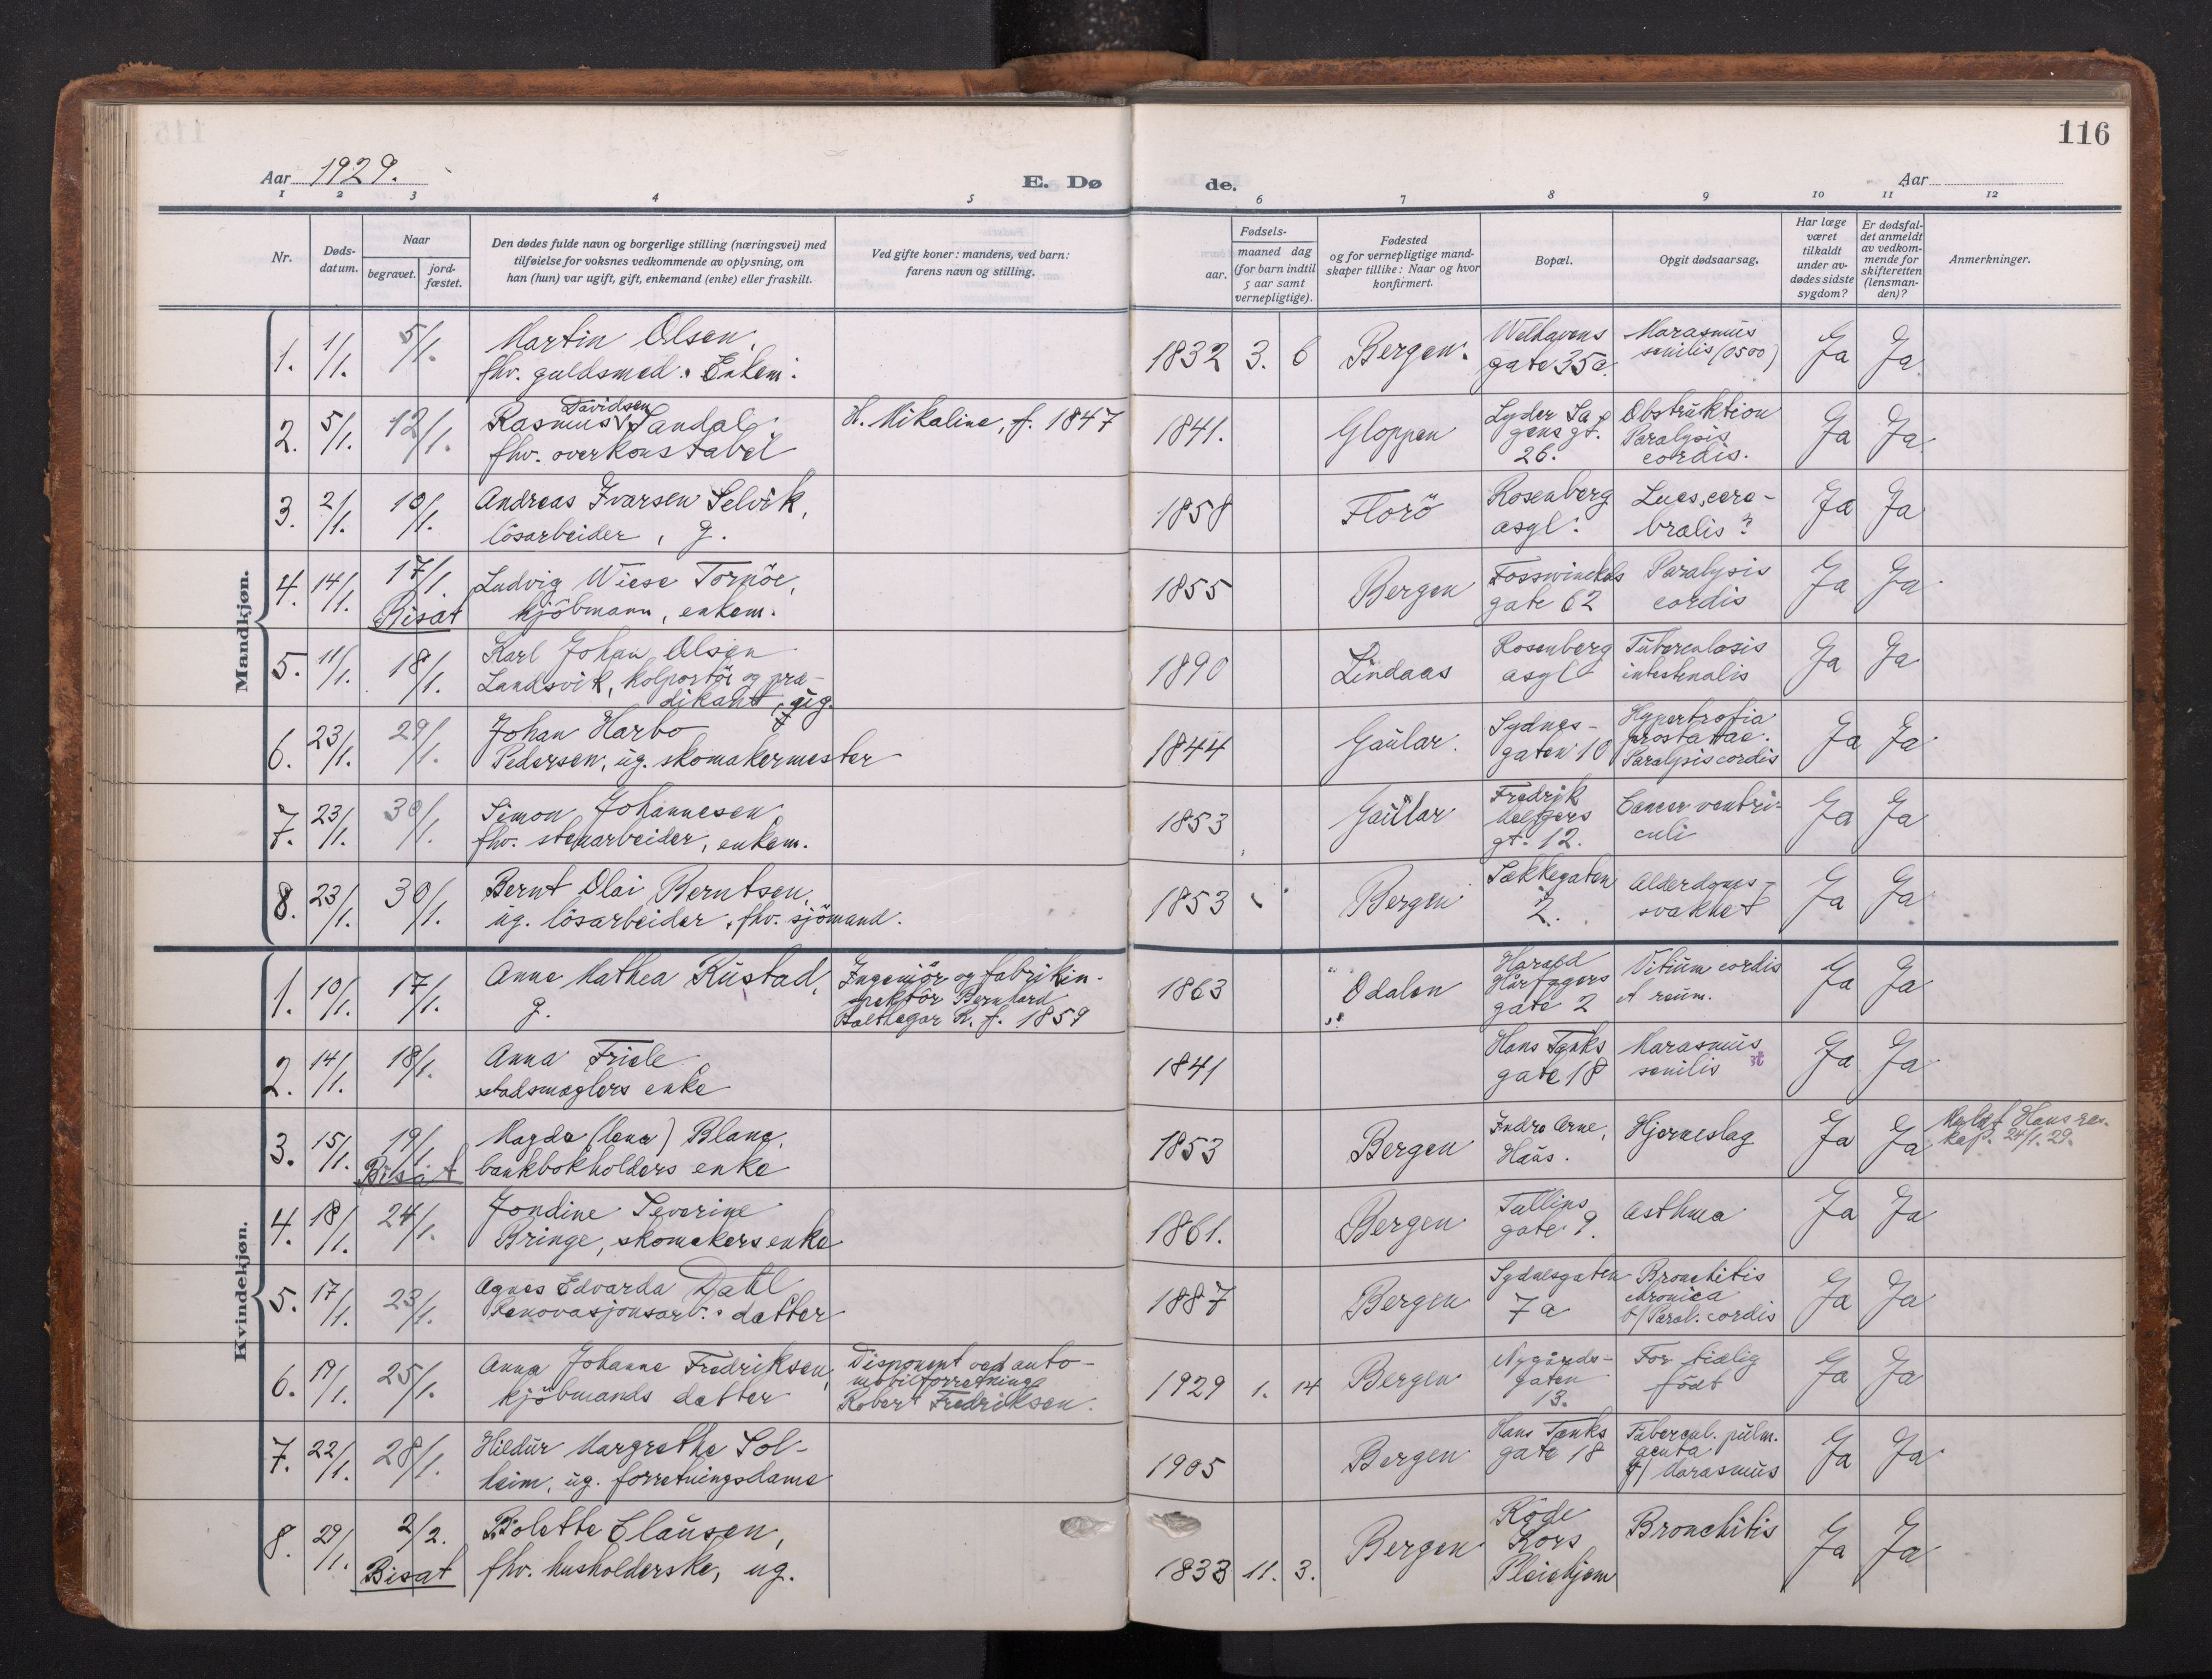 116
Aar 1929.
E. Dø de.
Aar
1 2 3 4 5 6 7 8 9 10 11 12
Nr.
Døds-
datum.
Naar
begravet.
jord-
fæstet.
Den dødes fulde navn og borgerlige stilling (næringsvei) med
tilføielse for voksnes vedkommende av oplysning, om
han (hun) var ugift, gift, enkemand (enke) eller fraskilt.
Ved gifte koner: mandens, ved barn:
farens navn og stilling.
Fødsels-
aar.
maaned dag
(for barn indtil
5 aar samt
vernepligtige).
Fødested
og for vernepligtige mand-
skaper tillike: Naar og hvor
konfirmert.
Bopæl.
Opgit dødsaarsag.
Har læge
været
tilkaldt
under av-
dødes sidste
sygdom?
Er dødsfal-
det anmeldt
av vedkom-
mende for
skifteretten
(lensman-
den)?
Anmerkninger.
Mandkjøn.
1. 1/1. 5/1. Martin Olsen,
fhv. guldsmed. Enkem.
1832 3. 6 Bergen.
Welhavens
gate 35a.
Marasmus
senilis (0500)
Ja Ja
2. 5/1. 12/1. Rasmus Davidsen Sandal,
fhv. overkonstabel
H. Mikaline, f. 1847
1841. Gloppen
Lyder Sa-
gens gt.
26.
Obstruktion
Paralysis
cordis.
Ja Ja
3. 2/1. 10/1. Andreas Ivarsen Selvik,
lösarbeider, g.
1858 Florö
Rosenberg
asyl.
Lues, cere-
bralis?
Ja Ja
4. 14/1. 17/1. Bisat
Ludvig Wiese Tornöe,
kjöbmann, enkem.
1855 Bergen
Fosswinckels
gate 62
Paralysis
cordis
Ja Ja
5. 11/1. 18/1. Karl Johan Olsen
Landsvik, kolportör og præ-
dikant, ug.
1890 Lindaas
Rosenberg
asyl
Tuberculosis
intestinalis
Ja Ja
6. 23/1. 29/1. Johan Harbo
Pedersen, ug. skomakermester
1844 Gaular.
Sydnes-
gaten 10
Hypertrofia
prostatae.
Paralysis cordis
Ja Ja
7. 23/1. 30/1. Simon Johannesen
fhv. stenarbeider, enkem.
1853 Gaular
Fredrik
Meltzers
gt. 12.
Cancer ventri-
culi
Ja Ja
8. 23/1. 30/1. Bernt Olai Berntsen,
ug. lösarbeider, fhv. sjömand.
1853 Bergen
Sækkegaten
2.
Alderdoms-
svakhet
Ja Ja
Kvindekjøn.
1. 10/1. 17/1. Anne Mathea Rustad,
g.
Ingeniör og fabrikin-
spektör Bernhard
Balthazar R. f. 1859
1863 Odalen
Harald
Hårfagers
gate 2
Vitium cordis
et reum.
Ja Ja
2. 14/1. 18/1. Anna Friele
stadsmæglers enke
1841
Hans Tanks
gate 18
Marasmus
senilis
Ja Ja
3. 15/1. 19/1. Bisat
Magda (Lena) Blang,
bankbokholders enke
1853 Bergen
Indre Arne,
Haus.
Hjerneslag
Ja Ja
Meldt Haus res.
kap. 24/1. 29.
4. 18/1. 24/1. Jondine Severine
Bringe, skomakers enke
1861. Bergen
Tullins
gate 9.
Asthma
Ja Ja
5. 17/1. 23/1. Agnes Edvarda Dahl
Renovasjonsarb. datter
1887 Bergen
Sydnesgaten
7a
Bronchitis
chronica
b/ Paral. cordis
Ja Ja
6. 19/1. 25/1. Anna Johanne Fredriksen,
kjöbmands datter
Disponent ved auto-
mobilforretning
Robert Fredriksen.
1929 1. 14 Bergen
Nygårds-
gaten
13.
For tidlig
födt
Ja Ja
7. 22/1. 28/1. Hildur Margrethe Sol-
heim, ug. forretningsdame
1905 Bergen
Hans Tanks
gate 18
Tubercul. pulm.
acuta
b/ Marasmus
Ja Ja
8. 29/1. 2/2. Bisat
Bolette Clausen,
fhv. husholderske, ug.
1833 11. 3. Bergen
Röde
Kors
Pleiehjem
Bronchitis
Ja Ja